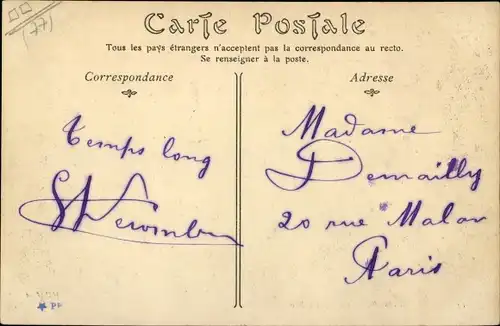 (77)
Carte Postale
Tous les pays étrangers n'acceptent pas la correspondance au recto.
Se renseigner à la poste.
Correspondance
Temps long
Adresse
Madame
Demailly
20 rue Malar
Paris
PF